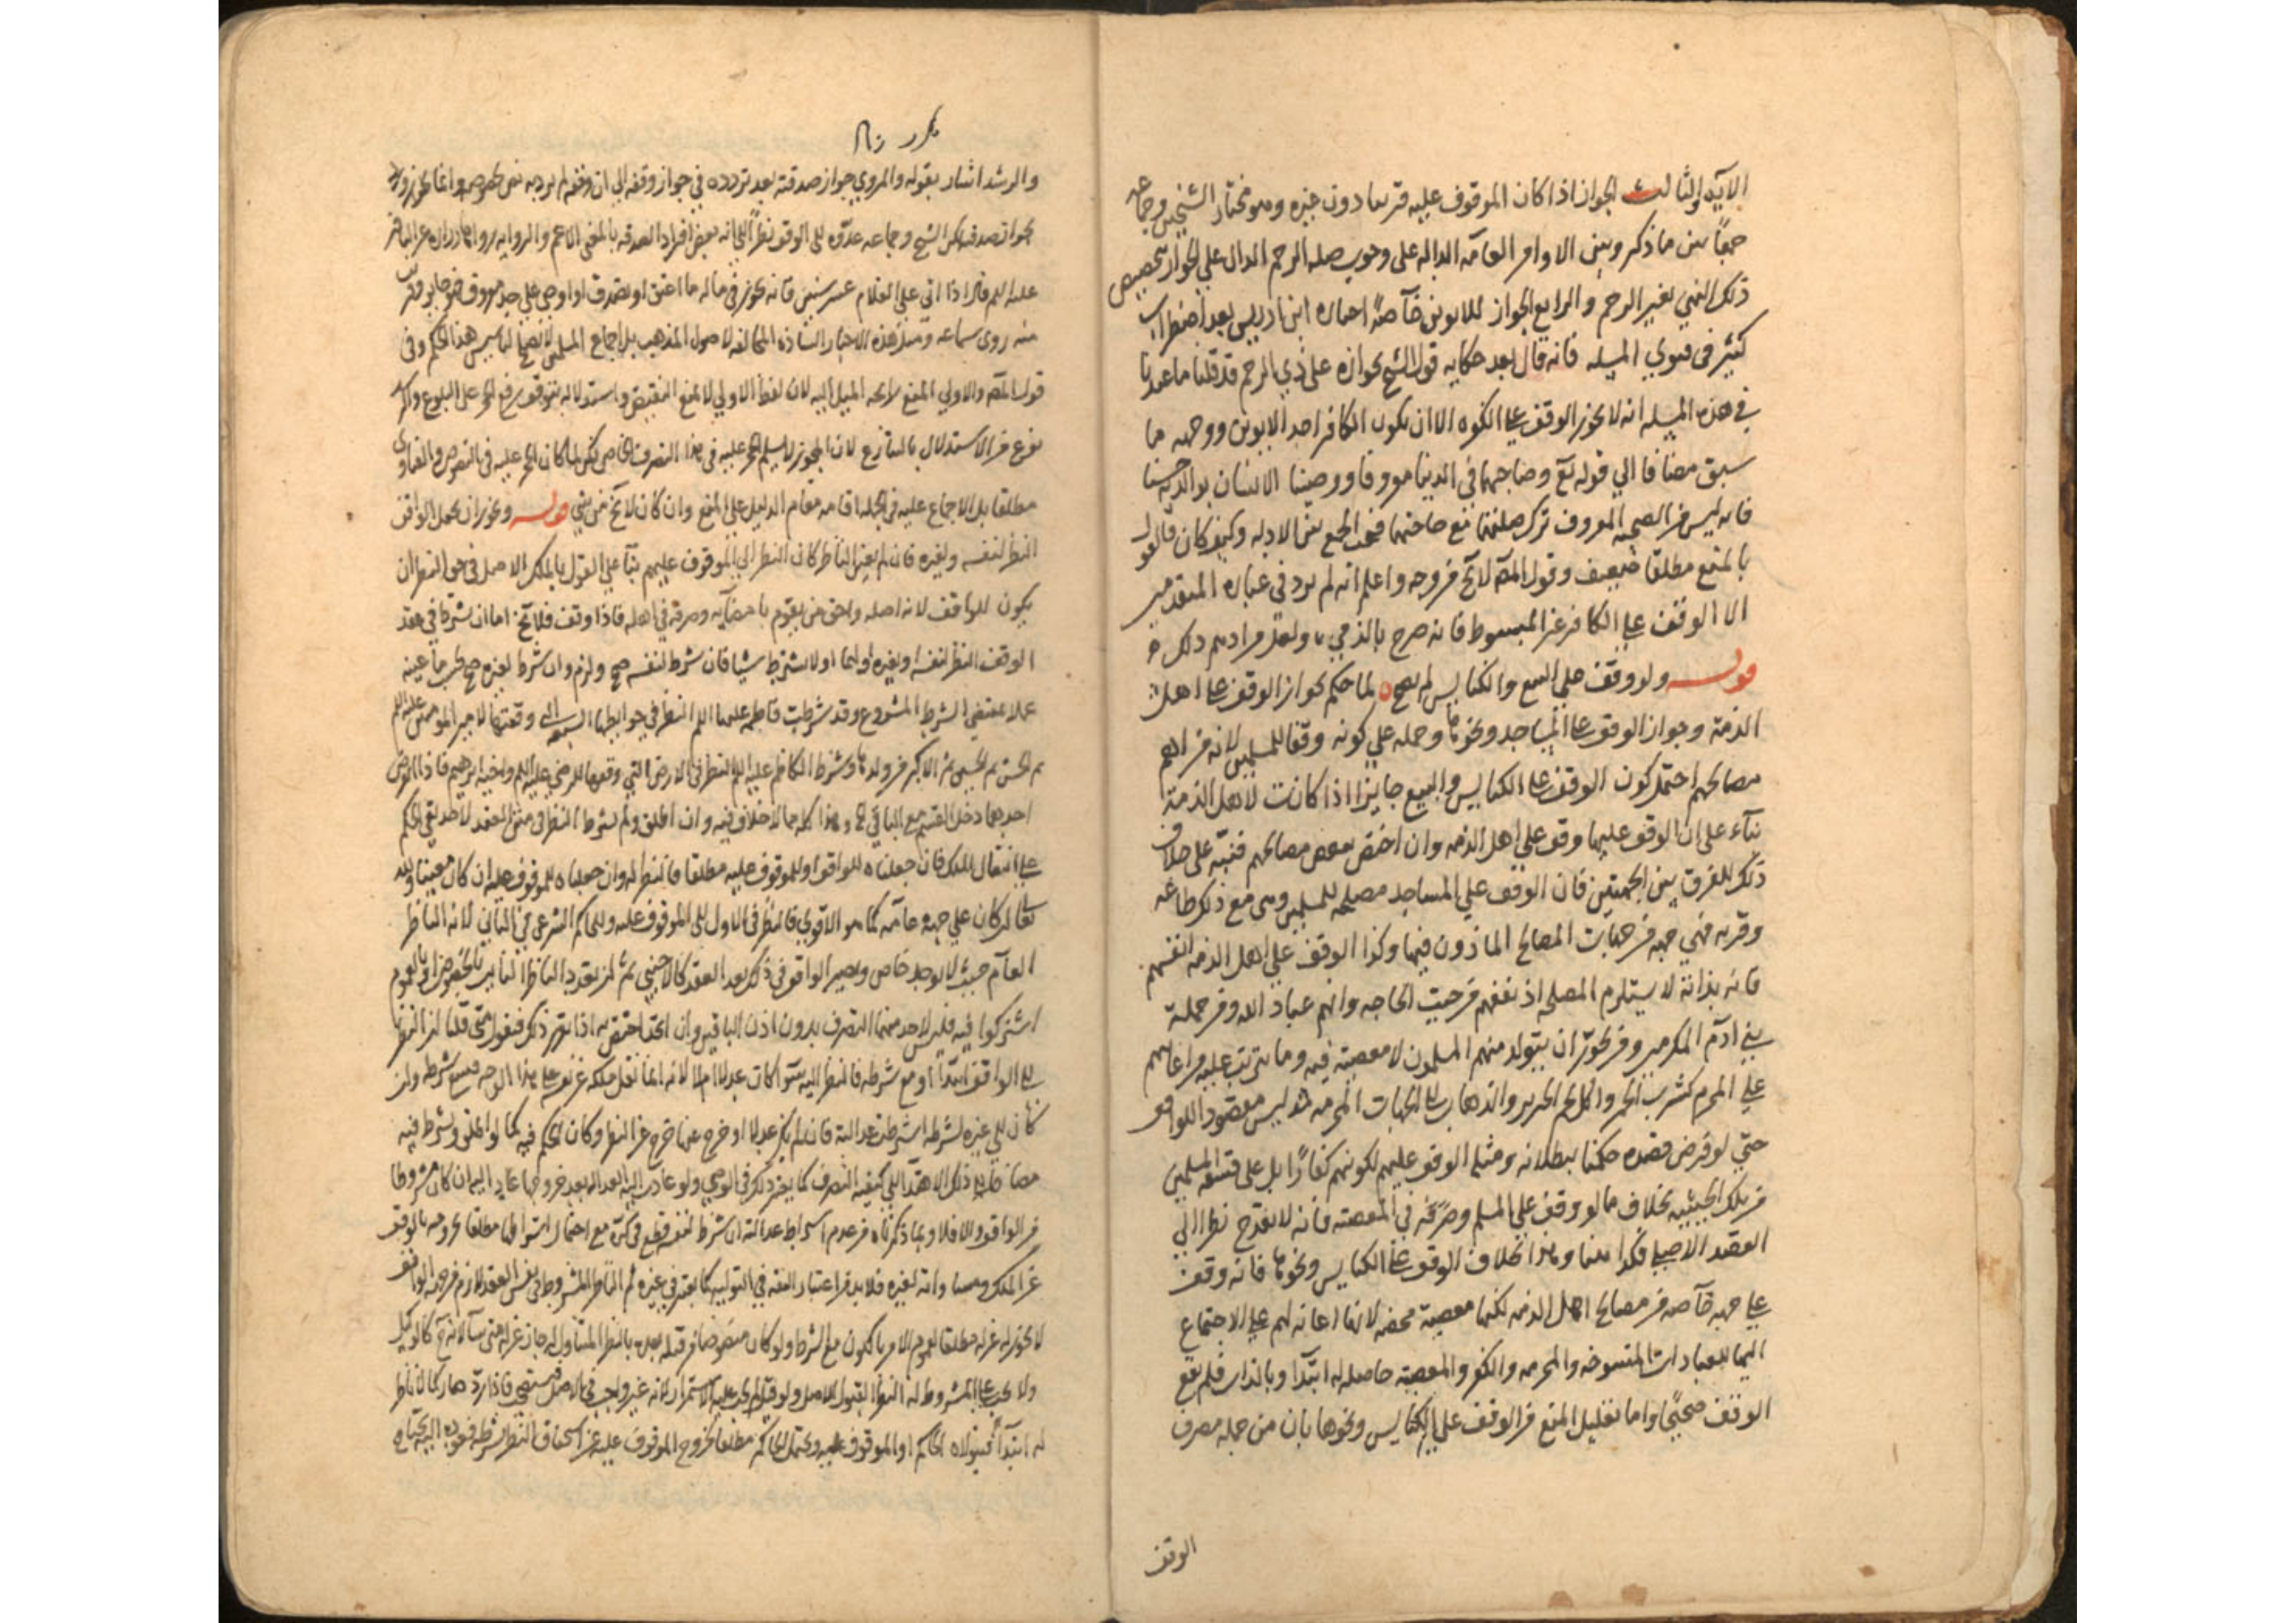 الآية والثالث الجواز اذا كان الموقوف عليه قريبا دون غيره وهو مختار الشيخين وجماعة
جمعاً بين ما ذكر وبين الاوامر العامة الدالة على وجوب صلة الرحم الدال على الجواز تخصيص
ذلك النهي بغير الرحم والرابع الجواز للابوين خاصة اختاره ابن ادريس بعد اضطراب
كثير في فتوى المسئلة فانه قال بعد حكاية قول الشيخ بجوازه على ذي الرحم قد قلنا ما عندنا
في هذه المسئلة انه لا يجوز الوقف على الكفره الا ان يكون الكافر احد الابوين ووجهه ما
سبق مضافا الى قوله تع وصاحبهما في الدنيا معروفا ووصينا الانسان بوالديه حسنا
فانه ليس من الصحبة المعروف ترك صلتهما مع حاجتهما فيجب الجمع بين الادلة وكيف كان فالقول
بالمنع مطلقا ضعيف وقول المص لا يخ من وجه واعلم انه لم يرد في عبارة المتقدمين
الا الوقف على الكافر غير المبسوط فانه صرح بالذمي ولعل مرادهم ذلك
قوله ولو وقف على البيع والكنايس لم يصح لما حكم بجواز الوقف على اهل
الذمة وجواز الوقف على المساجد ونحوها وحمله على كونه وقفا للمسلمين لانه من اهم
مصالحهم احتمل كون الوقف على الكنايس والبيع جايزا اذا كانت لاهل الذمة
بناء على ان الوقف عليها وقف على اهل الذمة وان اختص ببعض مصالحهم فنبه على خلاف
ذلك للفرق بين الجهتين فان الوقف على المساجد مصلحة للمسلمين وهي مع ذلك طاعة
وقربة فهي جهة من جهات المصالح الماذون فيها وكذا الوقف على اهل الذمة انفسهم
فانه بذاته لا يستلزم المصلحة اذ نفعهم من حيث الحاجة وانهم عباد الله ومن جملة
بني ادم المكرمين ومن تجويز ان يتولد منهم المسلمون لا معصية فيه وما يترتب عليه من اعانتهم
على المحرم كشرب الخمر واكل لحم الخنزير والذهاب الى الجهات المحرمة فليس مقصودا للواقف
حتى لو فرض قصده حكمنا ببطلانه ومثله الوقف عليهم لكونهم كفارا بل على فسقة المسلمين
من تلك الحيثية بخلاف ما لو وقف على المسلم وصرفه في المعصية فانه لا يقدح نظرا الى
القصد الاصلي فكذا هنا وهذا بخلاف الوقف على الكنايس ونحوها فانه وقف
على جهة خاصة من مصالح اهل الذمة لكنها معصية محضة لانها اعانة لهم على الاجتماع
اليها للعبادات المنسوخة والمحرمة والكفر والمعصية حاصلة له ابتدا وبالذات فلم يقع
الوقف صحيحا واما تعليل المنع من الوقف على الكنايس ونحوها بان من جملة مصرف
الوقف
والرشد اشار بقوله والمروي جواز صدقته بعد تردده في جواز وقفه الى ان وقفه لم يرد به نص بخصوصه وانما
بجواز صدقته لكن الشيخ وجماعة عدوه الى الوقف نظرا الى انه بعض افراد الصدقة بالمعنى الاعم والرواية رواها زرارة عن الباقر
عليه السلم قال اذا اتى على الغلام عشر سنين فانه يجوز في ماله ما اعتق او تصدق او اوصى على حد معروف فهو جايز وقريب
منه روى سماعة ومثل هذه الاخبار الشاذة المخالفة لاصول المذهب بل اجماع المسلمين لا تصلح لتاسيس هذا الحكم وفي
قول المص والاولى المنع لا يخ الميل اليه لان لفظ الاولى لا يمنع النقيض واستدلاله بتوقف رفع الحجر على البلوغ والرشد
نوع من الاستدلال بالمتنازع لان المجوز لا يسلم الحجر عليه في هذا التصرف الخاص لكن لما كان الحجر عليه في النصوص والفتاوى
مطلقا بل الاجماع عليه في الجملة اقامه مقام الدليل على المنع وان كان لا يخ من شي قوله ويجوز ان يجعل الواقف
النظر لنفسه ولغيره فان لم يعين الناظر كان النظر الى الموقوف عليهم بناء على القول بالملك الاصل في حق النظر ان
يكون للواقف لانه اصله واحق من يقوم بامضائه وصرفه في اهله فاذا وقف فلا يخ اما ان يشترط في عقد
الوقف النظر لنفسه او لغيره او لهما او لا يشترط شيئا فان شرط لنفسه صح ولزم وان شرط لغيره صح بحسب ما عينه
عملا بمقتضى الشرط المشروع وقد شرطت فاطمة عليها السلم النظر في حوائطها السبعة التي وقفتها لامير المؤمنين عليه السلم
ثم الحسن ثم الحسين ثم الاكبر من ولدها وشرط الكاظم عليه السلم النظر في الارض التي وقفها للرضى عليه السلم واخيه ابرهيم فاذا انقرض
احدهما دخل القسم مع الباقي منهما وهذا كله مما لا خلاف فيه وان اطلق ولم يشترط النظر في متن العقد لاحد بني الحكم
على انتقال الملك فان جعلناه للواقف او للموقوف عليه مطلقا فالنظر له وان جعلناه للموقوف عليه ان كان معينا ولله
تعالى ان كان على جهة عامة كما هو الاقوى فالنظر في الاول الى الموقوف عليه وللحاكم الشرعي في الثاني لانه الناظر
العام حيث لا يوجد خاص ويصير الواقف في ذلك بعد العقد كالاجنبي ثم ان تعدد الناظر الثابت بالخصوص او بالعموم
اشتركوا فيه فليس لاحد منهما التصرف بدون اذن الباقين وان اتحد اختص به اذا تقرر ذلك فنقول متى قلنا ان النظر
الى الواقف ابتدا او مع شرطه فالنظر اليه سواء كان عدلا ام لا لانه انما نقل ملكه عن نفسه على هذا الوجه فيتبع شرطه وان
كان الى غيره بشرطه اشترطت عدالته فان لم يكن عدلا او خرج عنها خرج عن النظر وكان الحكم فيه كما لو اطلق ويشترط فيه
مضافا الى ذلك الاهتداء الى كيفية التصرف كما يعتبر ذلك في الوصي ولو عادت اليه العدالة بعد خروجها عاد اليه ان كان مشروطا
من الواقف والا فلا وبما ذكرناه من عدم اشتراط عدالته ان شرط لنفسه قطع في كره مع احتمال اشتراطها مطلقا لخروجه بالوقف
عن الملك ومساواته لغيره فلا بد من اعتبار الثقة في التولية كما يعتبر في غيره ثم الناظر المشروط في نفس العقد لازم من جهة الواقف
لا يجوز له عزله مطلقا لعموم الامر بالكون مع الشرط ولو كان منصوبا من قبله بعده بالنظر المتناول له جاز عزله متى شاء لانه ح كالوكيل
ولا يجب على المشروط له النظر القبول للاصل ولو قبل لم يجب عليه الاستمرار لانه غير واجب في الاصل فيستصحب فاذا رد صار كما لا ناظر
له ابتدا فيتولاه الحاكم او الموقوف عليه ويحتمل الحاكم مطلقا لخروج الموقوف عليه عن استحقاق النظر بشرطه فعوده اليه يحتاج